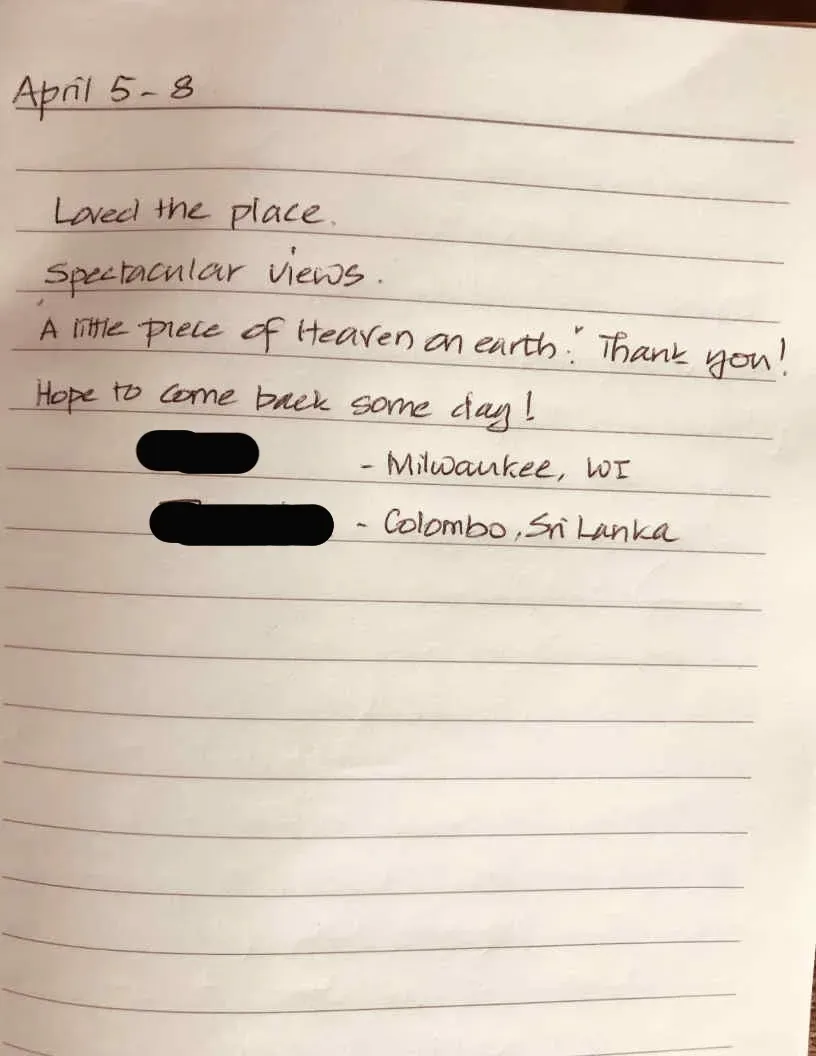 April 5-8
Loved the place.
Spectacular views.
'A little piece of Heaven on earth.' Thank you!
Hope to come back some day!
- Milwaukee, WI
- Colombo, Sri Lanka